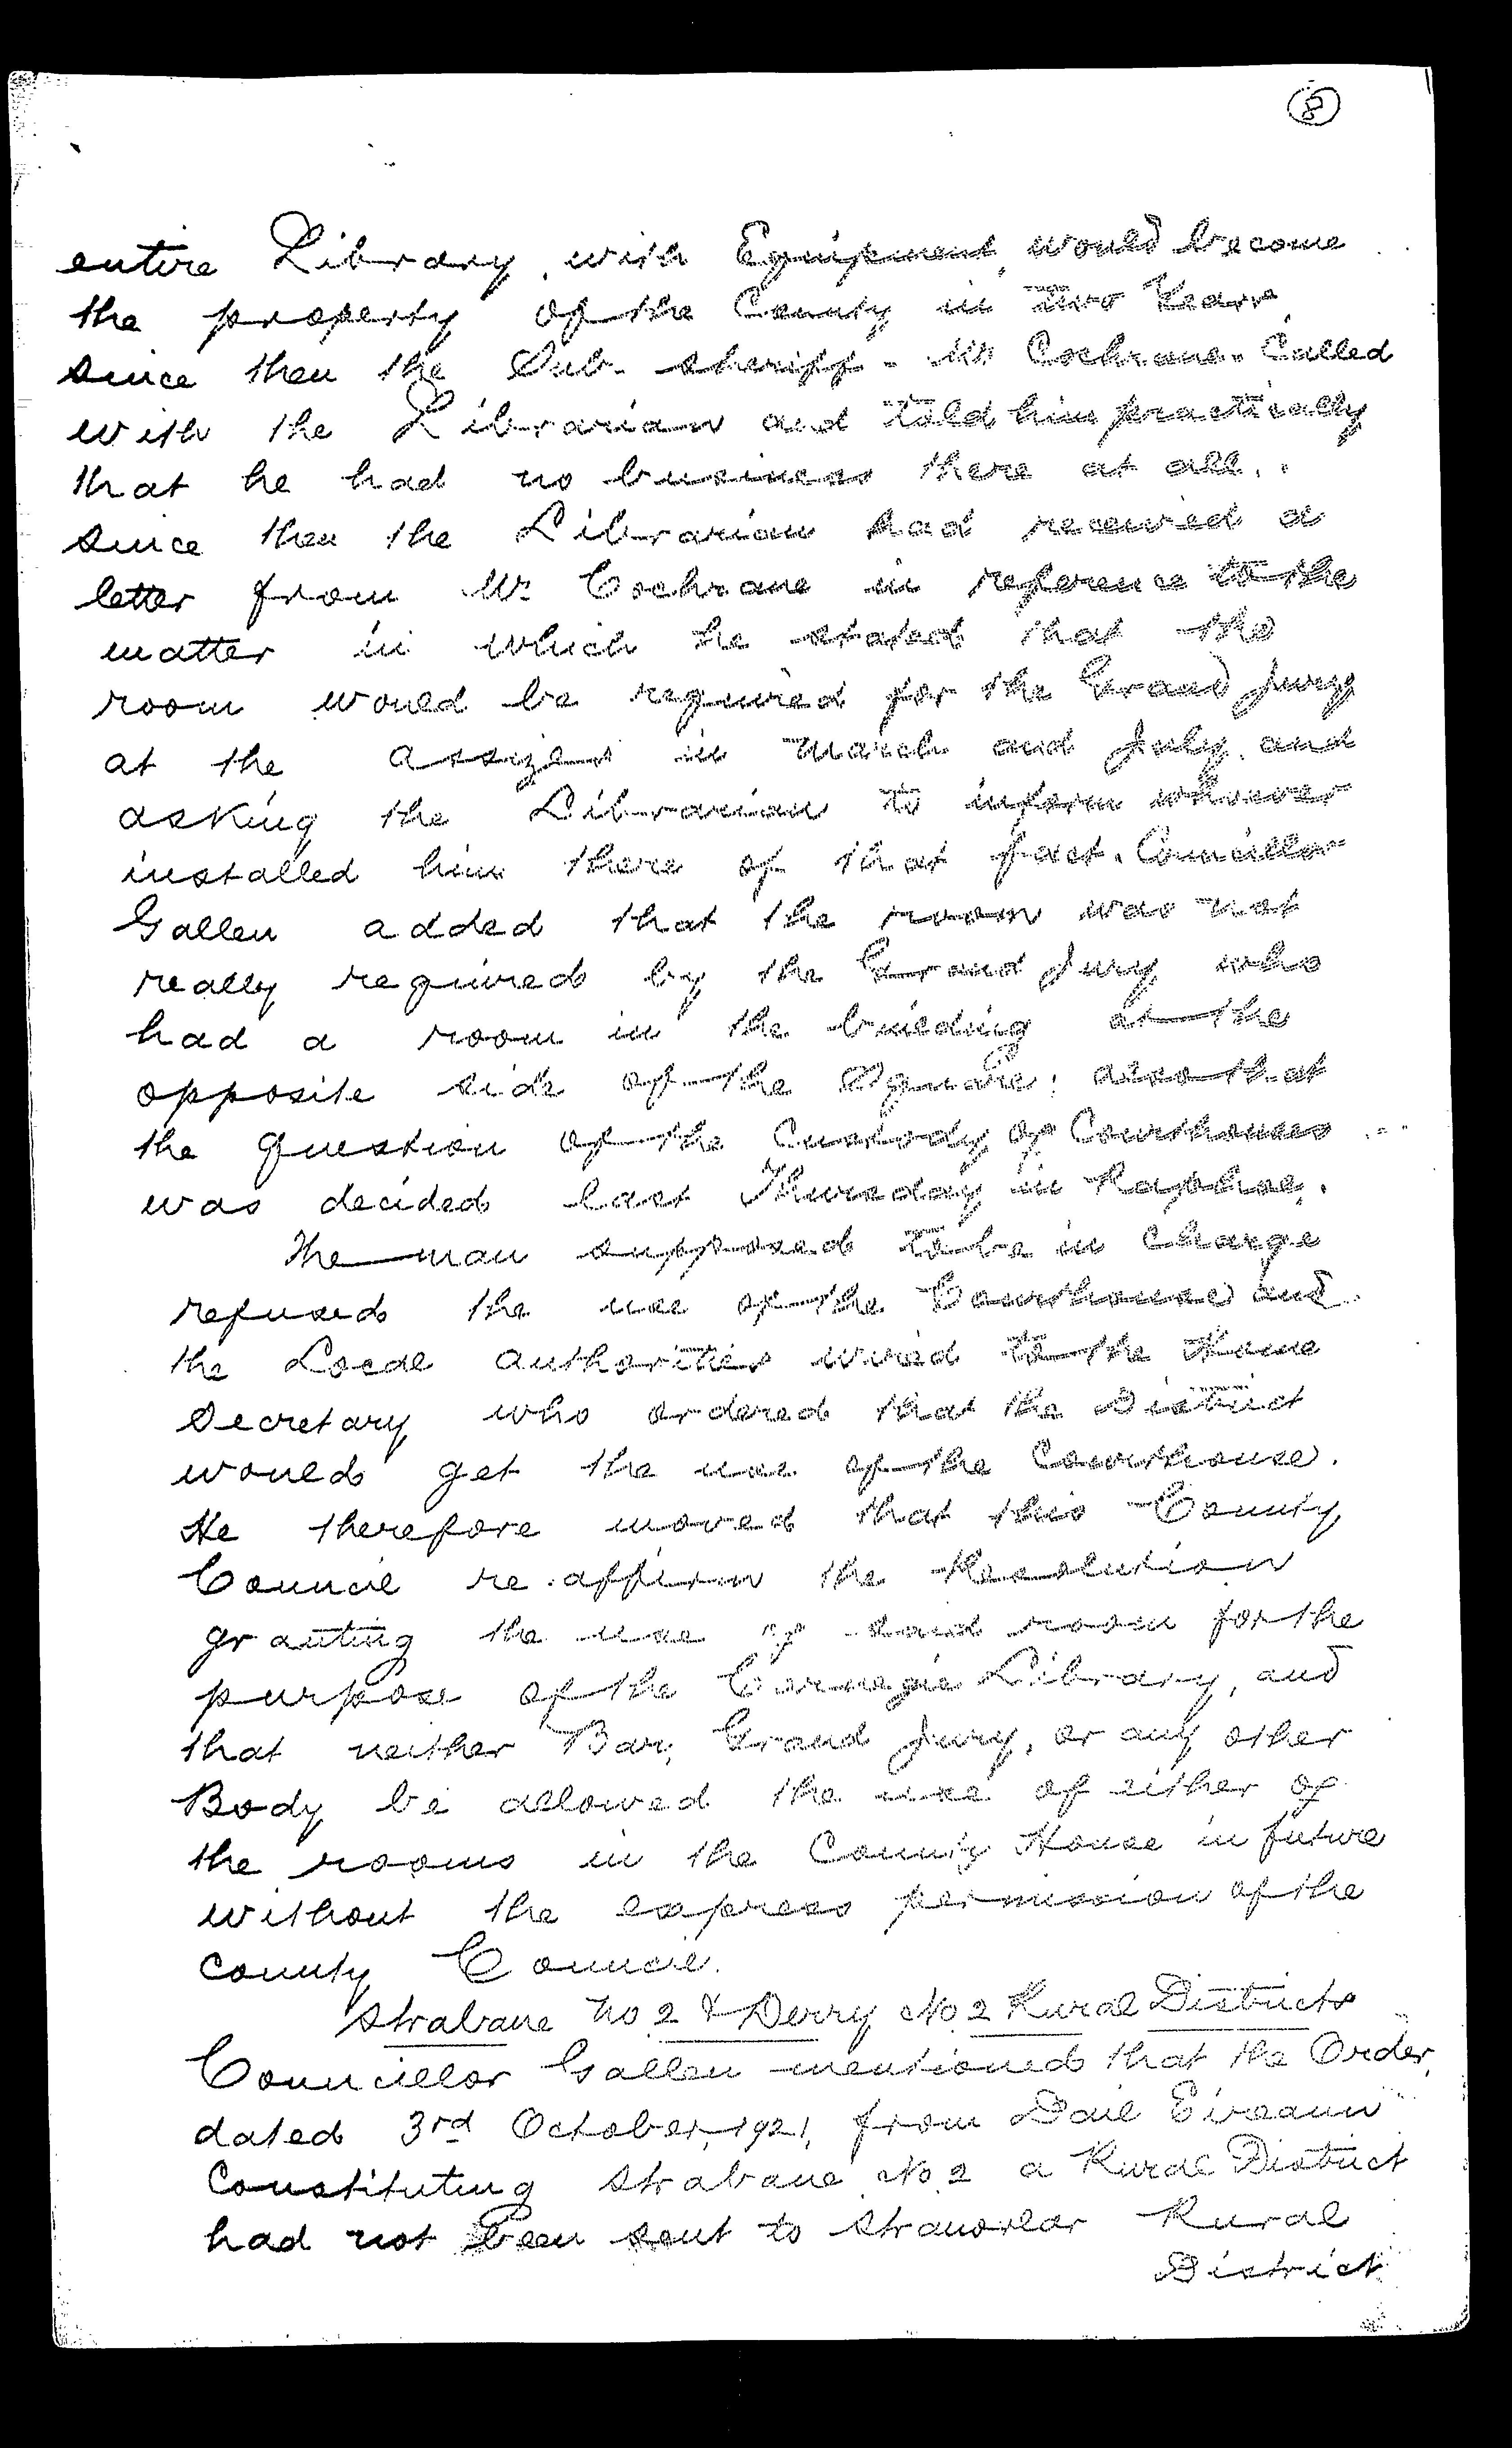 8
entire Library, with Equipment, would become
the property of the County in two Years,
since then the Sub-sheriff - Mr Cochrane - Called
with the Librarian and told him practically
that he had no business there at all..
since then the Librarian had received a
letter from Mr Cochrane in reference to the
matter in which he stated that the
room would be required for the Grand Jury
at the assizes in March and July, and
asking the Librarian to inform whoever
installed him there of that fact. Councillor
Gallen added that the room was not
really required by the Grand Jury, who
had a room in the building at the
opposite side of the Square; also that
the question of the Custody of Courthouses ...
was decided last Thursday in Raphoe.
The man supposed to be in charge
refused the use of the Courthouse and
the Local authorities wired to the Home
Secretary who ordered that the District
would get the use of the Courthouse.
He therefore moved that this County
Council re-affirm the Resolution
granting the use of said room for the
purpose of the Carnegie Library, and
that neither Bar, Grand Jury, or any other
Body be allowed the use of either of
the rooms in the County House in future
without the express permission of the
County Council.
Strabane No 2 & Derry No 2 Rural Districts
Councillor Gallen mentioned that the Order,
dated 3rd October, 1921, from Dail Eireann
Constituting Strabane No 2 a Rural District
had not been sent to Stranorlar Rural
District